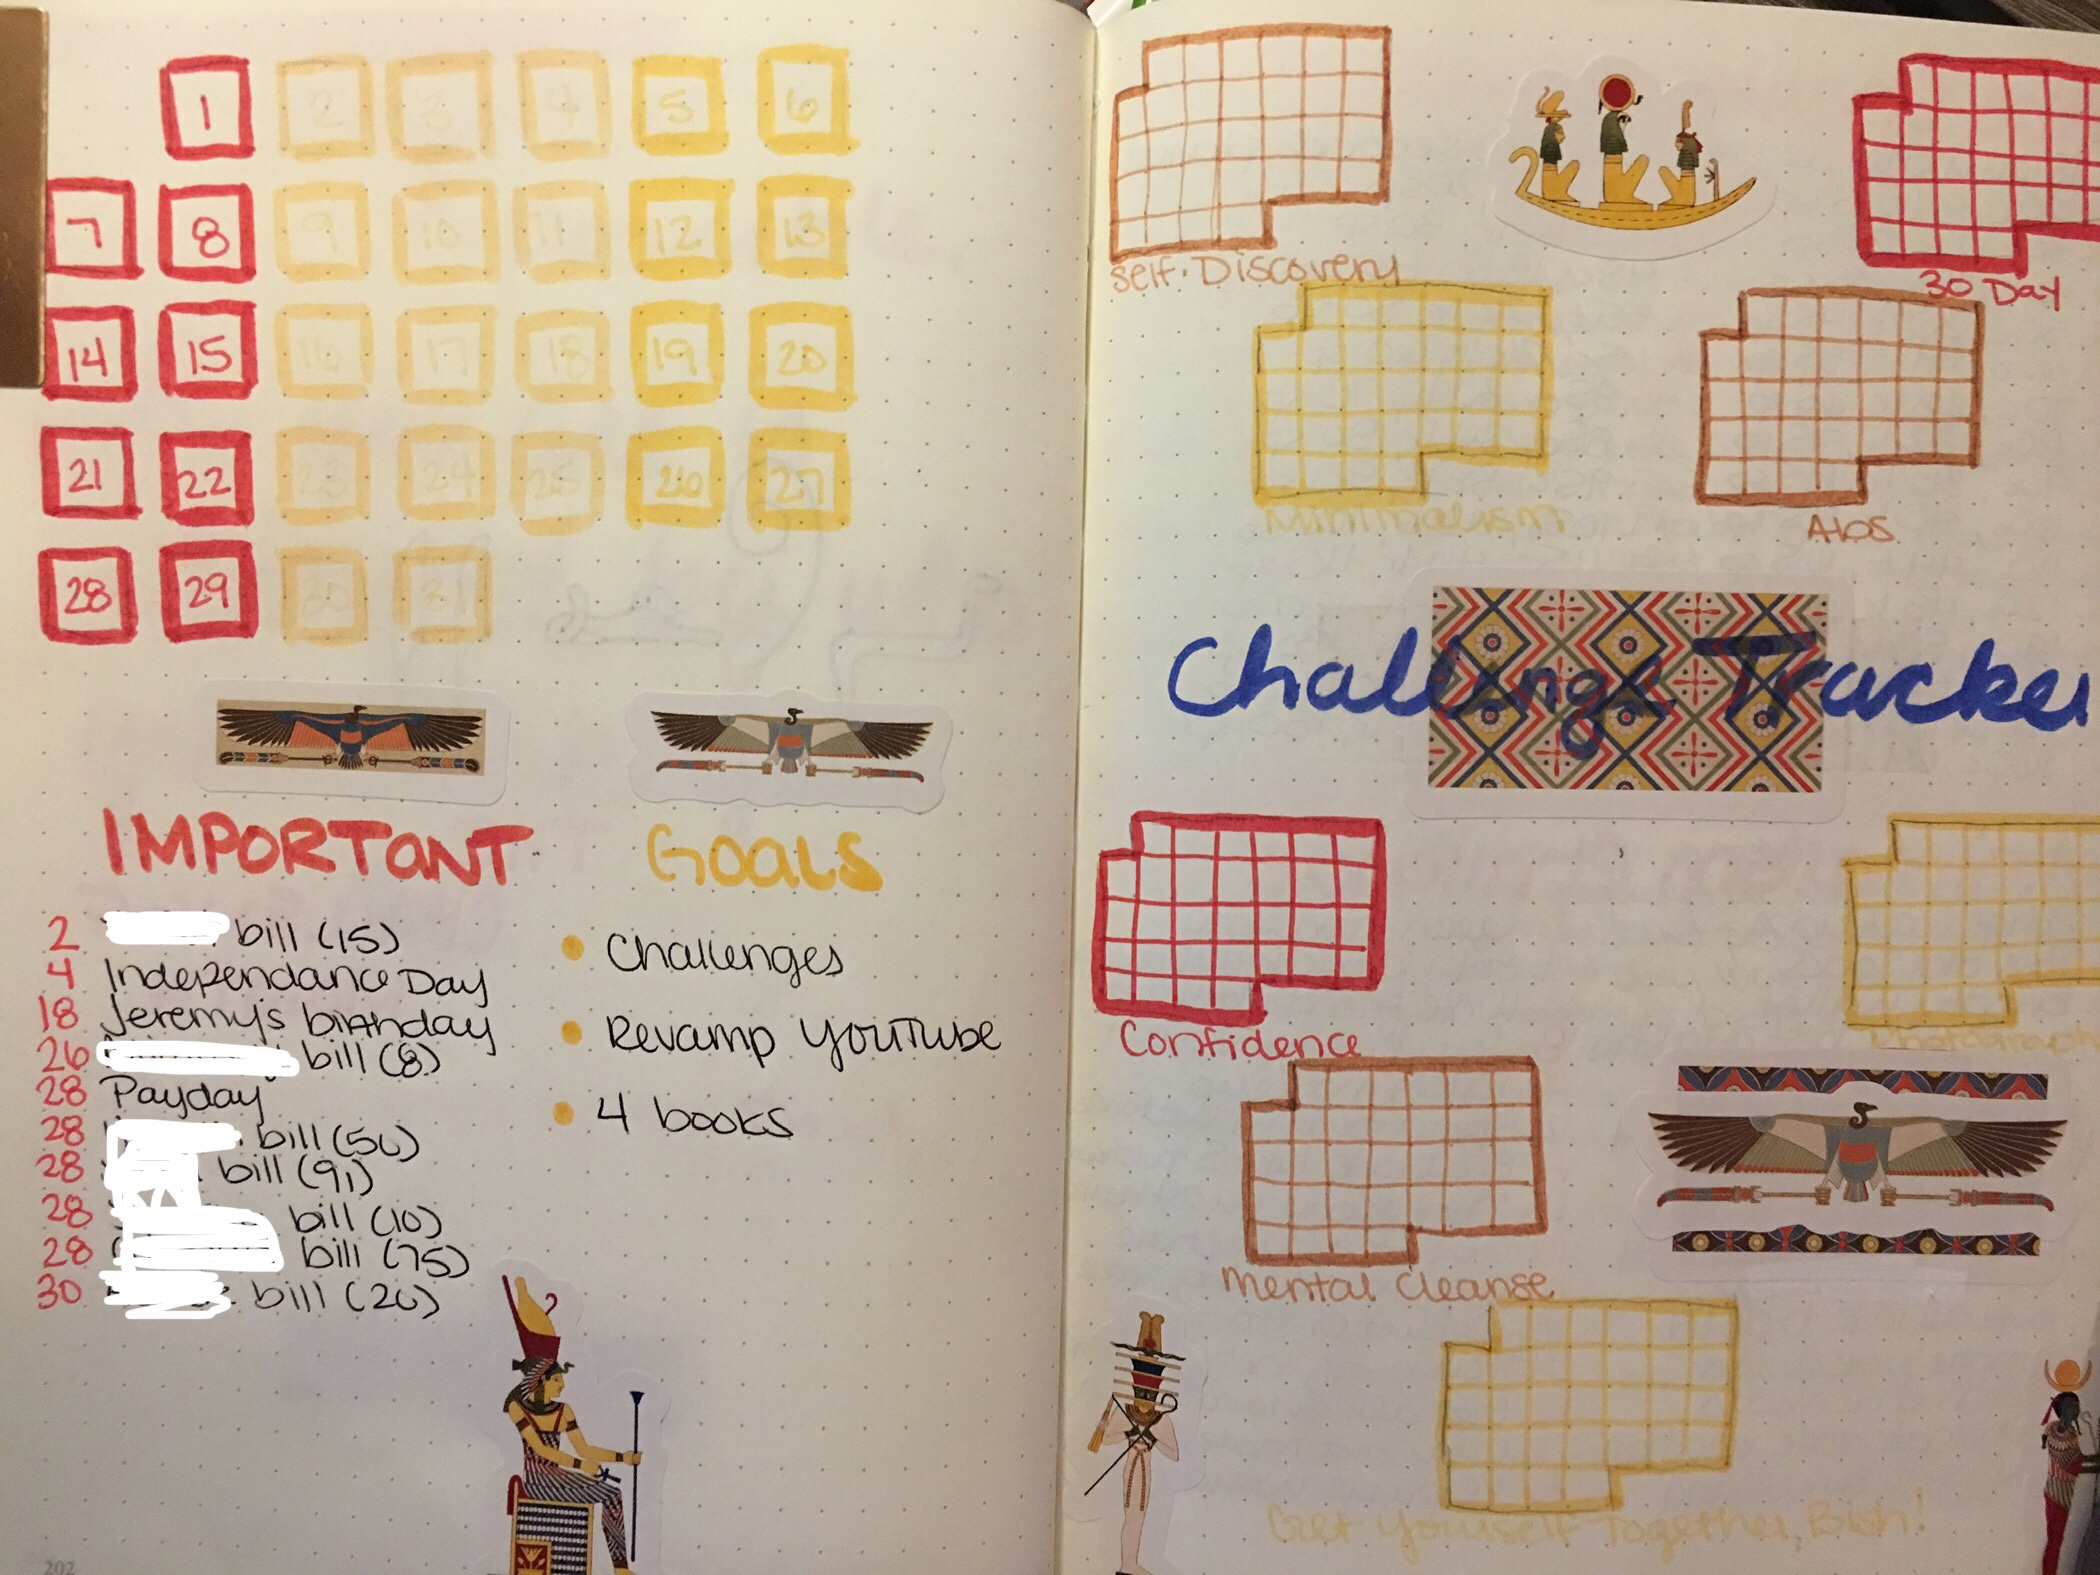 1 2 3 4 5 6
7 8 9 10 11 12 13
14 15 16 17 18 19 20
21 22 23 24 25 26 27
28 29 30 31
IMPORTANT
2 bill (15)
4 Independance Day
18 Jeremy's birthday
26 bill (8)
28 Payday
28 bill (50)
28 bill (91)
28 bill (10)
28 bill (75)
30 bill (20)
GOALS
• Challenges
• Revamp YouTube
• 4 books
202
Self-Discovery
30 Day
Minimalism
Challenge Tracker
Confidence
Mental Cleanse
Get Yourself Together, Bish!